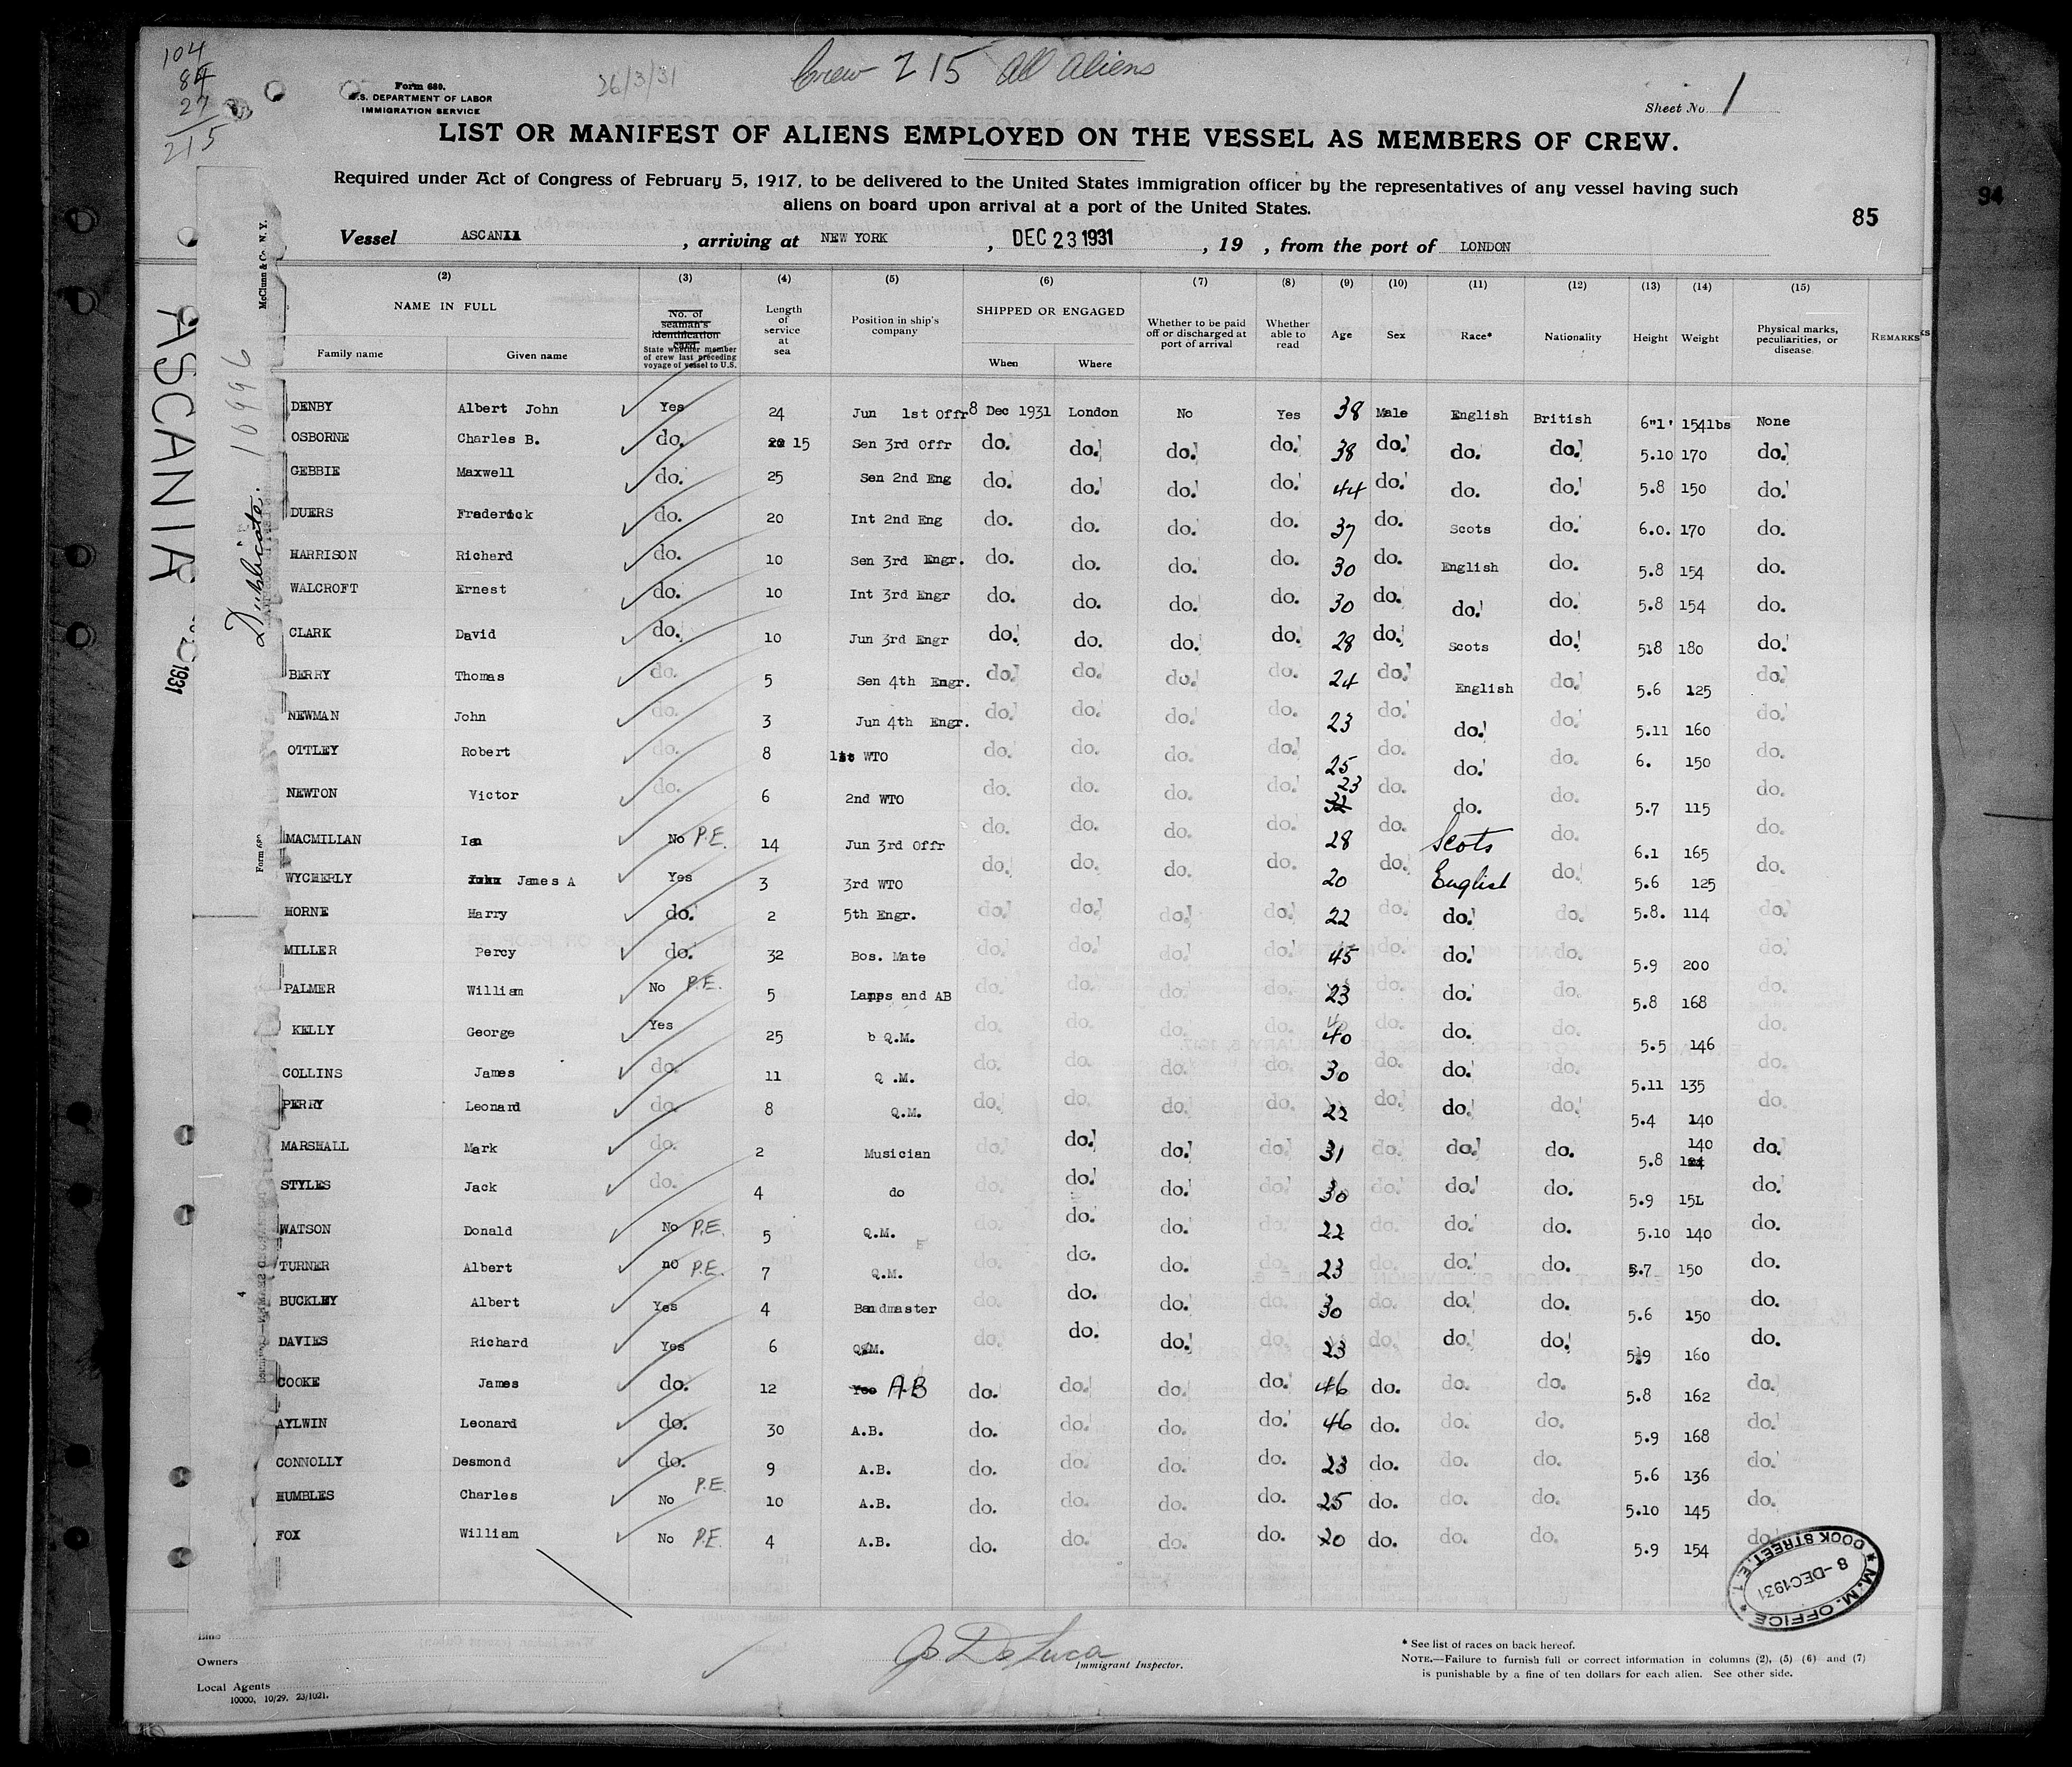 104
84
27
215
26/3/31
Crew 215 All Aliens
Form 689.
U.S. DEPARTMENT OF LABOR
IMMIGRATION SERVICE
Sheet No. 1
LIST OR MANIFEST OF ALIENS EMPLOYED ON THE VESSEL AS MEMBERS OF CREW.
Required under Act of Congress of February 5, 1917, to be delivered to the United States immigration officer by the representatives of any vessel having such
aliens on board upon arrival at a port of the United States.
94
85
Vessel ASCANIA, arriving at NEW YORK, DEC 23 1931, 19 , from the port of LONDON
ASCANIA
1931
Duplicate.
10996
McClunn & Co. N.Y.
(2) (3) (4) (5) (6) (7) (8) (9) (10) (11) (12) (13) (14) (15)
NAME IN FULL
Family name Given name
No. of seaman's identification card
State whether member of crew last preceding voyage of vessel to U.S.
Length of service at sea
Position in ship's company
SHIPPED OR ENGAGED
When Where
Whether to be paid off or discharged at port of arrival
Whether able to read
Age Sex Race* Nationality Height Weight
Physical marks, peculiarities, or disease
REMARKS
DENBY Albert John Yes 24 Jun 1st Offr 8 Dec 1931 London No Yes 38 Male English British 6"1' 154lbs None
OSBORNE Charles B. do. 15 Sen 3rd Offr do. do. do. do. 38 do. do. do. 5.10 170 do.
GEBBIE Maxwell do. 25 Sen 2nd Eng do. do. do. do. 44 do. do. do. 5.8 150 do.
DUERS Frederick do. 20 Int 2nd Eng do. do. do. do. 37 do. Scots do. 6.0. 170 do.
HARRISON Richard do. 10 Sen 3rd Engr. do. do. do. do. 30 do. English do. 5.8 154 do.
WALCROFT Ernest do. 10 Int 3rd Engr do. do. do. do. 30 do. do. do. 5.8 154 do.
CLARK David do. 10 Jun 3rd Engr do. do. do. do. 28 do. Scots do. 5.8 180 do.
BERRY Thomas do. 5 Sen 4th Engr. do. do. do. do. 24 do. English do. 5.6 125 do.
NEWMAN John do. 3 Jun 4th Engr. do. do. do. do. 23 do. do. do. 5.11 160 do.
OTTLEY Robert do. 8 1st WTO do. do. do. do. 25 do. do. do. 6. 150 do.
NEWTON Victor do. 6 2nd WTO do. do. do. do. 23 32 do. do. do. 5.7 115 do.
MACMILLAN Ian No P.E. 14 Jun 3rd Offr do. do. do. do. 28 do. Scots do. 6.1 165 do.
WYCHERLY John James A Yes 3 3rd WTO do. do. do. do. 20 do. English do. 5.6 125 do.
HORNE Harry do. 2 5th Engr. do. do. do. do. 22 do. do. do. 5.8. 114 do.
MILLER Percy do. 32 Bos. Mate do. do. do. do. 45 do. do. do. 5.9 200 do.
PALMER William No P.E. 5 Lamps and AB do. do. do. do. 23 do. do. do. 5.8 168 do.
KELLY George Yes 25 b Q.M. do. do. do. do. 40 do. do. do. 5.5 146 do.
COLLINS James do. 11 Q .M. do. do. do. do. 30 do. do. do. 5.11 135 do.
PERRY Leonard do. 8 Q.M. do. do. do. do. 22 do. do. do. 5.4 140 do.
MARSHALL Mark do. 2 Musician do. do. do. do. 31 do. do. do. 5.8 140 do.
STYLES Jack do. 4 do do. do. do. do. 30 do. do. do. 5.9 15L do.
WATSON Donald No P.E. 5 Q.M. do. do. do. do. 22 do. do. do. 5.10 140 do.
TURNER Albert no P.E. 7 Q.M. do. do. do. do. 23 do. do. do. 5.7 150 do.
BUCKLEY Albert Yes 4 Bandmaster do. do. do. do. 30 do. do. do. 5.6 150 do.
DAVIES Richard Yes 6 Q.M. do. do. do. do. 23 do. do. do. 5.9 160 do.
COOKE James do. 12 Yes A.B do. do. do. do. 46 do. do. do. 5.8 162 do.
AYLWIN Leonard do. 30 A.B. do. do. do. do. 46 do. do. do. 5.9 168 do.
CONNOLLY Desmond do. 9 A.B. do. do. do. do. 23 do. do. do. 5.6 136 do.
HUMBLES Charles No P.E. 10 A.B. do. do. do. do. 25 do. do. do. 5.10 145 do.
FOX William No P.E. 4 A.B. do. do. do. do. 20 do. do. do. 5.9 154 do.
M.M. OFFICE
8 -DEC 1931
DOCK STREET, E.1.
Line
Owners
Local Agents
10000, 10/29. 23/1021.
Jo De Luca
Immigrant Inspector.
* See list of races on back hereof.
NOTE.—Failure to furnish full or correct information in columns (2), (5) (6) and (7)
is punishable by a fine of ten dollars for each alien. See other side.